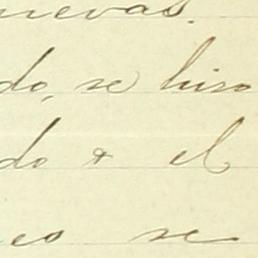 nevas.
do, se hiso
do & el
eo se